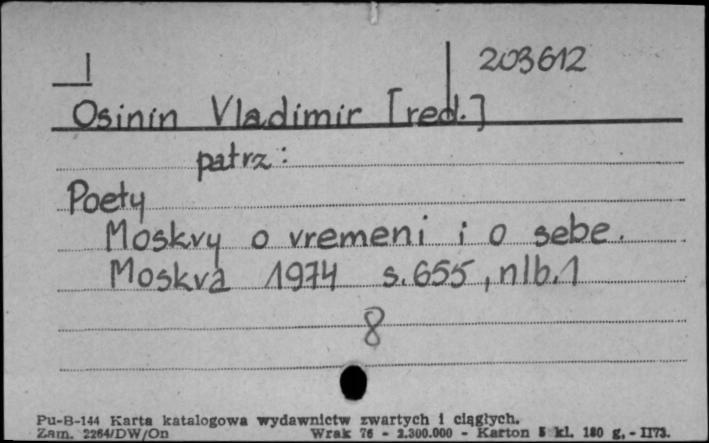 I 203612
Osinin Vladimir [red.]
patrz:
Poety
Moskvy o vremeni i o sebe.
Moskva 1974 s. 655, nlb. 1
8
Pu-B-144 Karta katalogowa wydawnictw zwartych i ciągłych.
Zam. 2264/DW/On Wrak 76 - 2.300.000 - Karton 5 kl. 180 g. - II73.